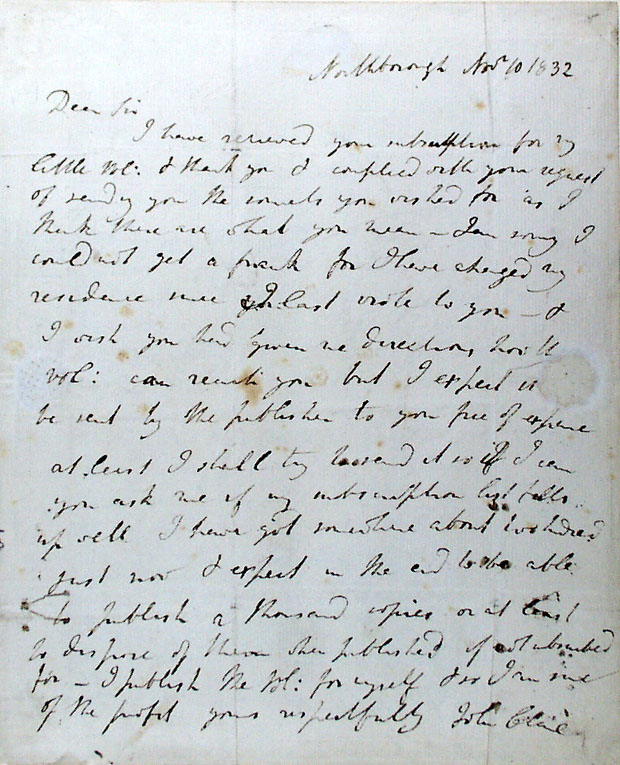 Northborough Nov 10 1832
Dear Sir
I have recieved your subscription for my
little vol: & thank you & complied with your request
of sending you the sonnets you wished for as I
think these are what you mean — I am sorry I
could not get a frank for I have changed my
residence since I last wrote to you — &
I wish you had given me directions how the
vol: can reach you but I expect it
be sent by the publisher to you free of expence
at least I shall try to send it so if I can
you ask me if my subscription list fills
up well I have got somewhere about two hundred
just now & expect in the end to be able
to publish a thousand copies or at least
to dispose of them when published if not subscribed
for — I publish the vol: for myself & so I am sure
of the profit yours respectfully John Clare